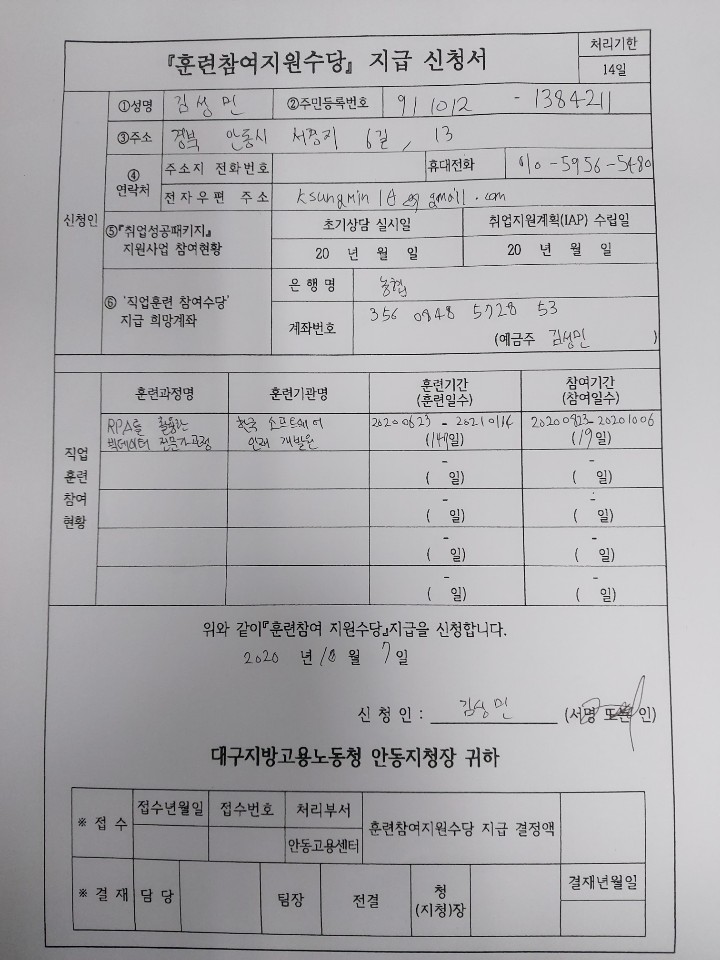 『훈련참여지원수당』 지급 신청서
처리기한
14일
신청인
①성명 김성민 ②주민등록번호 911012 - 1384211
③주소 경북 안동시 6길, 13
④
연락처
주소지 전화번호 휴대전화 010-5956-5480
전자우편 주소 ksungmin1@gmail.com
⑤『취업성공패키지』
지원사업 참여현황
초기상담 실시일 취업지원계획(IAP) 수립일
20 년 월 일 20 년 월 일
⑥ '직업훈련 참여수당'
지급 희망계좌
은 행 명 농협
계좌번호 356 0848 5728 53
(예금주 김성민 )
직업
훈련
참여
현황
훈련과정명 훈련기관명 훈련기간
(훈련일수) 참여기간
(참여일수)
RPA를 활용한
빅데이터 전문가과정
한국 소프트웨어
인재 개발원
20200623 - 20210114
(149일)
20200823-20201006
(19일)
-
( 일)
-
( 일)
-
( 일)
-
( 일)
-
( 일)
-
( 일)
-
( 일)
-
( 일)
위와 같이『훈련참여 지원수당』지급을 신청합니다.
2020 년 10 월 7일
신 청 인 : 김성민 (서명 또는 인)
대구지방고용노동청 안동지청장 귀하
※ 접 수 접수년월일 접수번호 처리부서 훈련참여지원수당 지급 결정액
안동고용센터
※ 결 재 담 당 팀장 전결 청
(지청)장 결재년월일